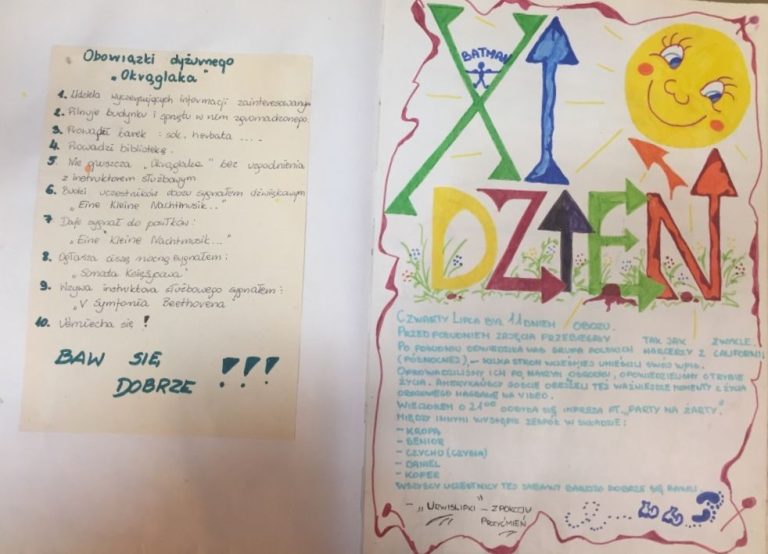 Obowiązki dyżurnego
"Okrąglaka"
1. Udziela wyczerpujących informacji zainteresowanym
2. Pilnuje budynku i sprzętu w nim zgromadzonego.
3. Prowadzi barek: sok, herbata ....
4. Prowadzi bibliotekę.
5 Nie opuszcza "Okrąglaka" bez uzgodnienia
z instruktorem służbowym
6. Budzi uczestników obozu sygnałem dźwiękowym
"Eine Kleine Nachtmusik..."
7 Daje sygnał do posiłków:
"Eine Kleine Nachtmusik..."
8. Ogłasza ciszę nocną sygnałem:
"Sonata Księżycowa"
9. Wzywa instruktora służbowego sygnałem:
"V Symfonia Beethovena"
10. Uśmiecha się!
BAW SIĘ
DOBRZE !!!
XI
BATMAN
DZIEŃ
CZWARTY LIPCA BYŁ 11 DNIEM OBOZU.
PRZED POŁUDNIEM ZAJĘCIA PRZEBIEGAŁY TAK JAK ZWYKLE.
PO POŁUDNIU ODWIEDZIŁA NAS GRUPA POLSKICH HARCERZY Z CALIFORNII
(PÓŁNOCNEJ), KILKA STRON WCZEŚNIEJ UMIEŚCILI SWÓJ WPIS.
OPROWADZILIŚMY ICH PO NASZYM OŚRODKU, OPOWIEDZIELIŚMY O TRYBIE
ŻYCIA. AMERYKAŃSCY GOŚCIE OBEJRZELI TEŻ WAŻNIEJSZE MOMENTY Z ŻYCIA
OBOZOWEGO NAGRANE NA VIDEO.
WIECZOREM O 21⁰⁰ ODBYŁA SIĘ IMPREZA PT. "PARTY NA ŻARTY".
MIĘDZY INNYMI WYSTĄPIŁ ZESPÓŁ W SKŁADZIE:
- KROPA
- BENIOR
- CZYCHO
- DANIEL
- KOFER
WSZYSCY UCZESTNICY TEJ ZABAWY BARDZO DOBRZE SIĘ BAWILI
- "UDWISLIPKI" - Z POKOJU
PRZYĆMIEŃ